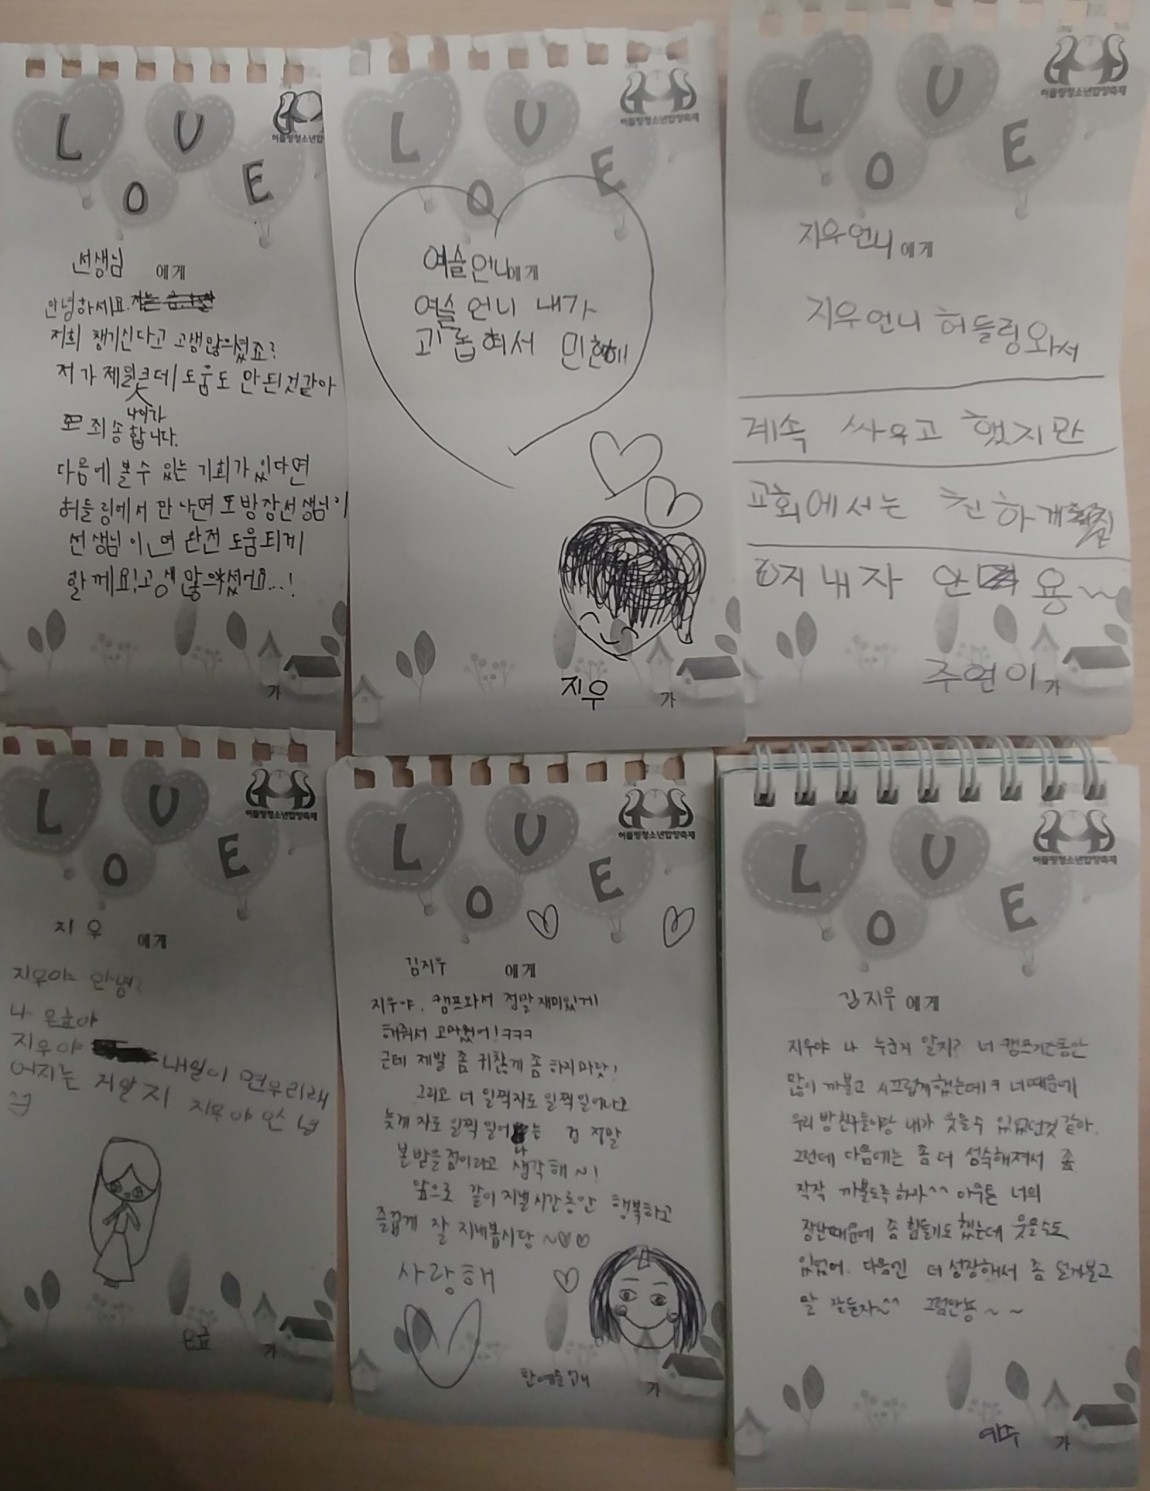 LOVE
허들링청소년합창축제
선생님 에게
안녕하세요.
저희 챙기신다고 고생많으셨죠?
저가 제일 큰데 도움도 안된것같아
또 죄송합니다.
나이가
다음에 볼 수 있는 기회가 있다면
허들링에서 만나면 또 방장선생님이
선생님이면 완전 도움되게
할께요! 고생 많으셨어요...!
가
LOVE
허들링청소년합창축제
예슬언니에게
예슬 언니 내가
괴롭혀서 미안해
지우 가
LOVE
허들링청소년합창축제
지우언니 에게
지우언니 허들링와서
계속 싸우고 했지만
교회에서는 친하게
지내자 안 용~
주연이 가
LOVE
허들링청소년합창축제
지우 에게
지우야 안녕?
나 은효야
지우야 내일이 연우리래
어지는 거알지 지우야 안녕
은효 가
LOVE
허들링청소년합창축제
김지우 에게
지우야. 캠프와서 정말 재미있게
해줘서 고마웠어!ㅋㅋㅋ
근데 제발 좀 귀찮게 좀 하지마랏!
그리고 너 일찍자도 일찍일어나고
늦게 자도 일찍일어나는 건 정말
본받을점이라고 생각해~!
앞으로 같이 지낼시간동안 행복하고
즐겁게 잘 지내봅시당~♡♡
사랑해
가
LOVE
허들링청소년합창축제
김지우 에게
지우야 나 누군지 알지? 너 캠프기간동안
많이 까불고 시끄럽게했는데ㅋ 너때문에
우리 방친구들이랑 내가 웃을수 있었던것 같아.
그런데 다음에는 좀 더 성숙해져서 좀
작작 까불도록 하자^^ 아무튼 너의
장난때문에 좀 힘들기도 했는데 웃을수도
있었어. 다음엔 더 성장해서 좀 덜까불고
말 잘듣자~^^ 그럼안뇽~~
예뚜 가